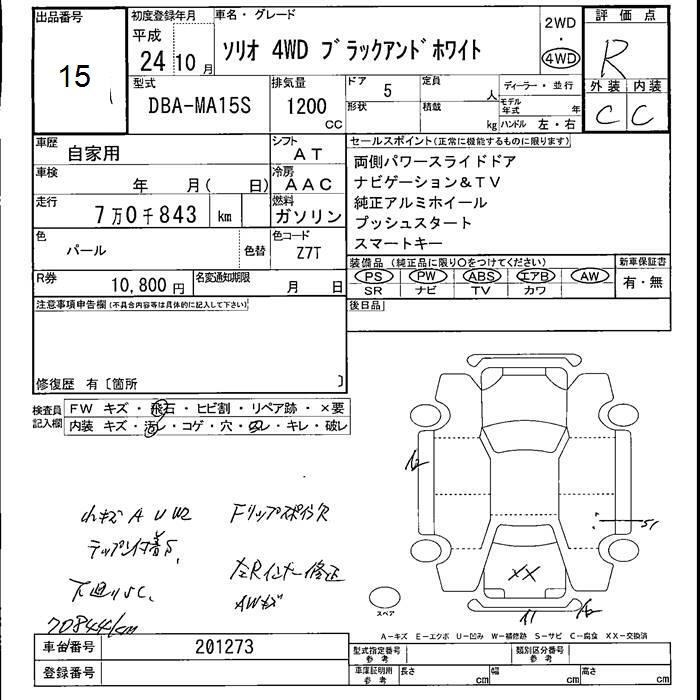 出品番号 初度登録年月 車名・グレード 2WD 評価点
15 平成 24年10月 ソリオ 4WD ブラックアンドホワイト ・ 4WD R
型式 排気量 ドア 5 定員 人 ディーラー・並行 外装 内装
DBA-MA15S 1200 CC 形状 積載 kg モデル年式 年 ハンドル 左・右 C C
車歴 自家用 シフト AT セールスポイント(正常に機能するものに限ります)
車検 年 月( 日) 冷房 AAC 両側パワースライドドア
ナビゲーション&TV
走行 7万0千843 km 燃料 ガソリン 純正アルミホイール
プッシュスタート
色 パール 色替 色コード Z7T スマートキー
装備品 (純正品に限り○をつけてください) 新車保証書
R券 10,800円 名変通知期限 月 日 PS PW ABS エアB AW 有・無
SR ナビ TV カワ
注意事項申告欄(不具合内容等は具体的に記入して下さい) 後日品
修復歴 有〔箇所 〕
検査員記入欄 FW キズ・飛石・ヒビ割・リペア跡・×要
内装 キズ・汚レ・コゲ・穴・スレ・キレ・破レ
小キズ A U W2
下廻りSC、
左Rインナー修正
AWキズ
70844km
XX
スペア
A-キズ E-エクボ U-凹み W-補修跡 S-サビ C-腐食 XX-交換済
車台番号 201273 型式指定番号 参考 類別区分番号 参考
登録番号 車庫証明用 参考 長さ cm 幅 cm 高さ cm